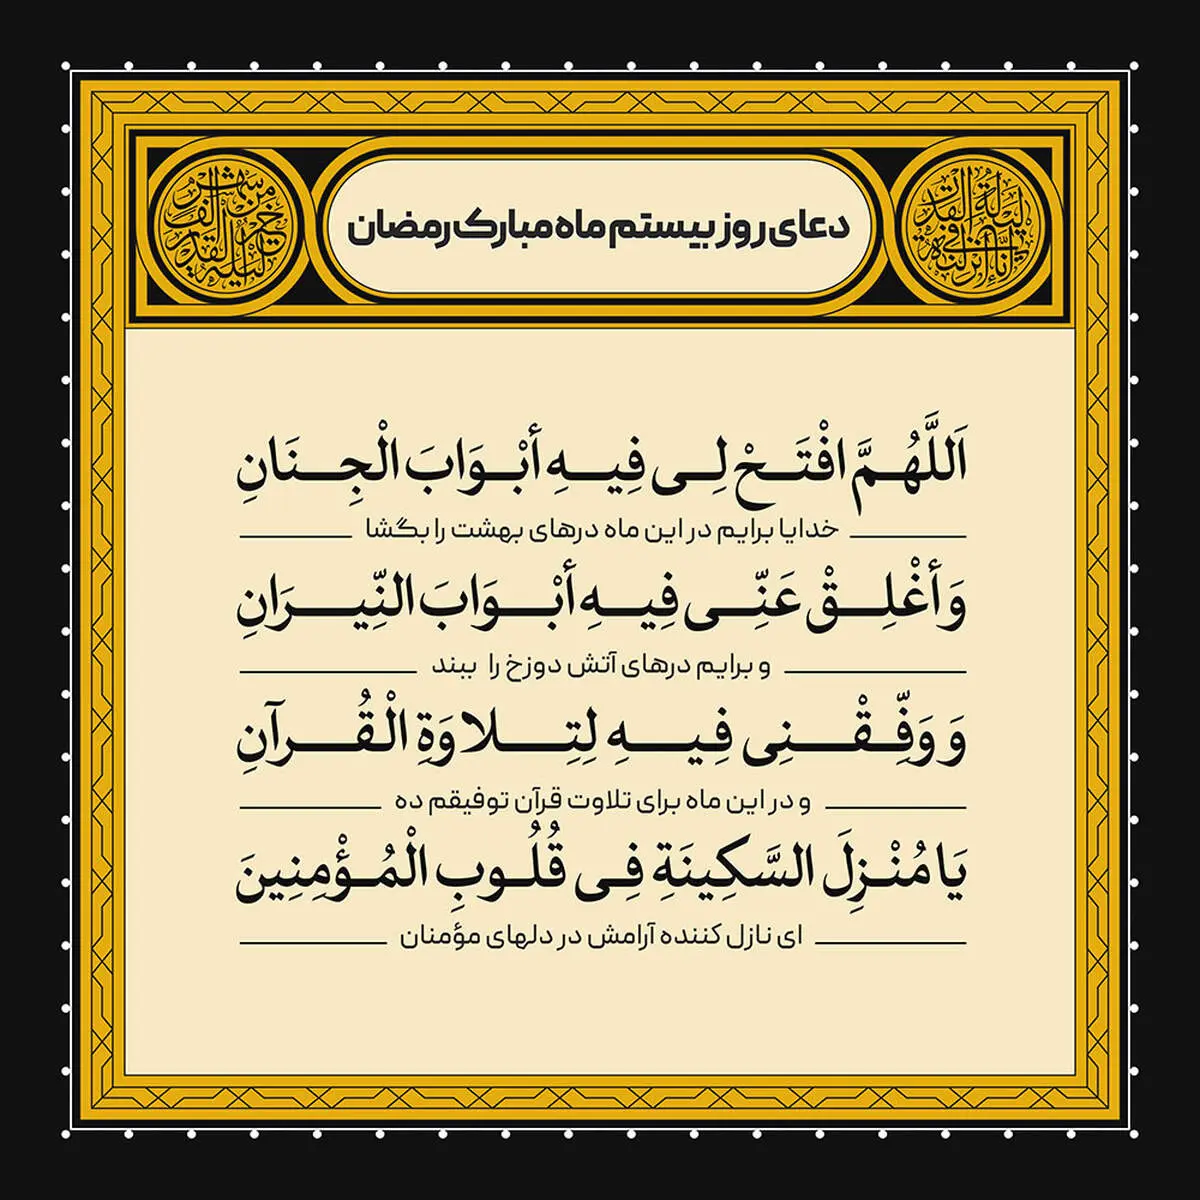 دعای روز بیستم ماه مبارک رمضان
لیلة القدر
انا انزلناه فی
خیر من الف شهر
لیلة القدر
اَللَّهُمَّ افْتَحْ لِی فِیهِ أَبْوَابَ الْجِنَانِ
خدایا برایم در این ماه درهای بهشت را بگشا
وَ أَغْلِقْ عَنِّی فِیهِ أَبْوَابَ النِّیرَانِ
و برایم درهای آتش دوزخ را ببند
وَ وَفِّقْنِی فِیهِ لِتِلاوَةِ الْقُرآنِ
و در این ماه برای تلاوت قرآن توفیقم ده
یَا مُنْزِلَ السَّکِینَةِ فِی قُلُوبِ الْمُؤْمِنِینَ
ای نازل کننده آرامش در دلهای مؤمنان